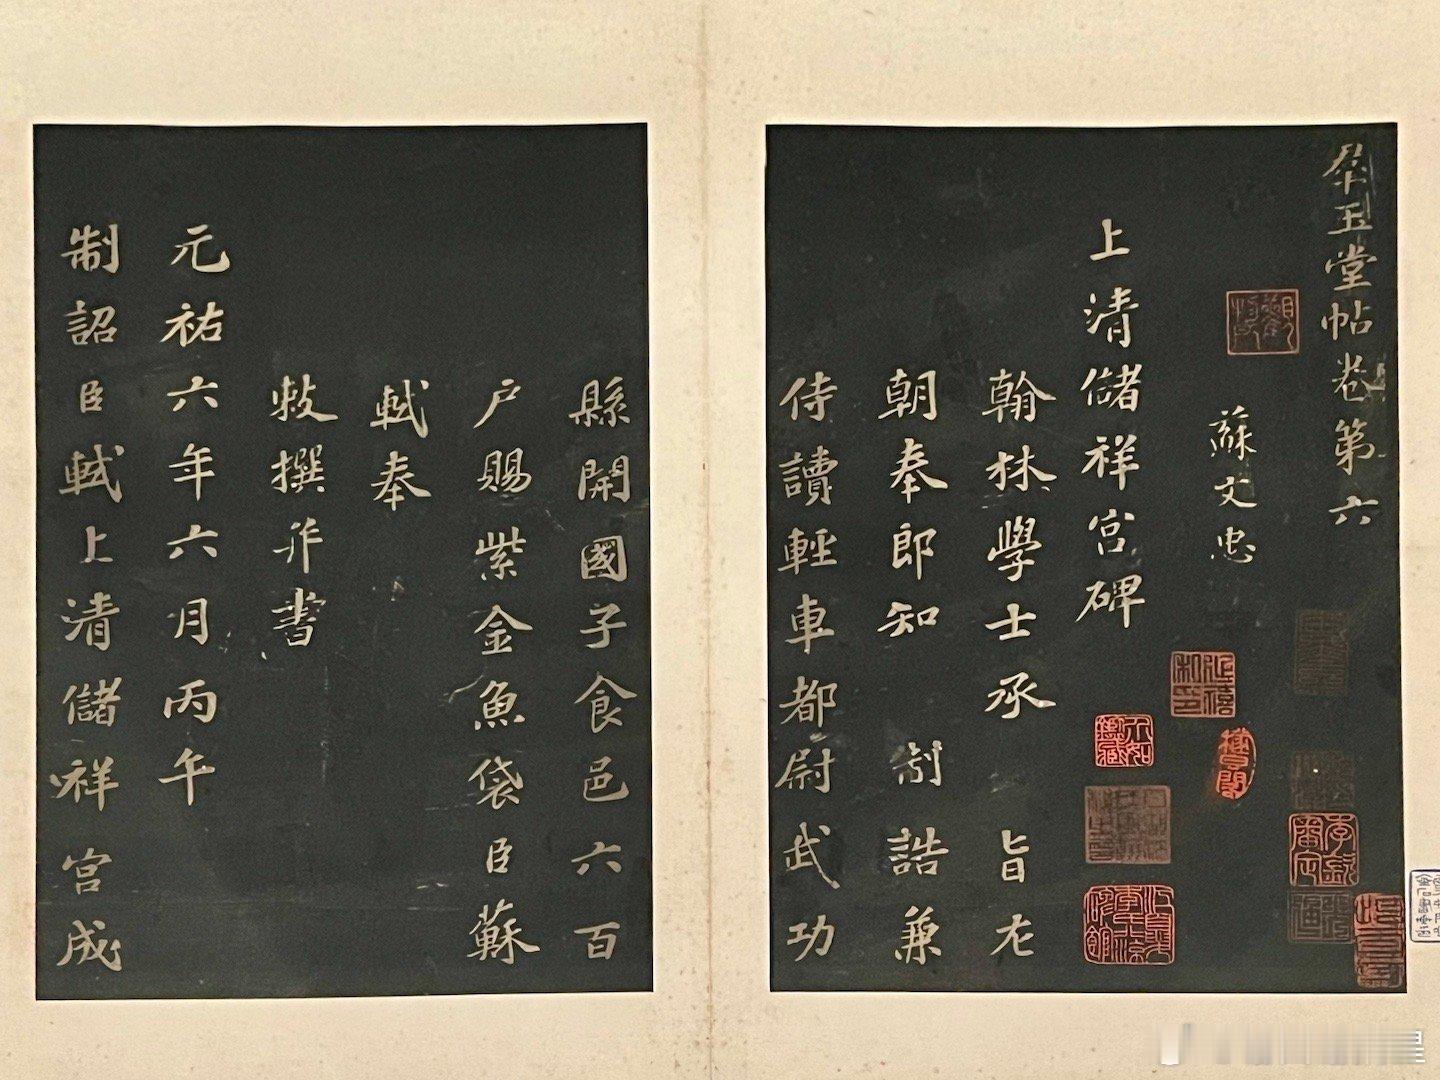 羣玉堂帖卷第六
蘇文忠
上清儲祥宮碑
翰林學士承 旨左
朝奉郎知 制誥兼
侍讀輕車都尉武功
縣開國子食邑六百
户賜紫金魚袋臣蘇
軾奉
敕撰并書
元祐六年六月丙午
制詔臣軾上清儲祥宮成